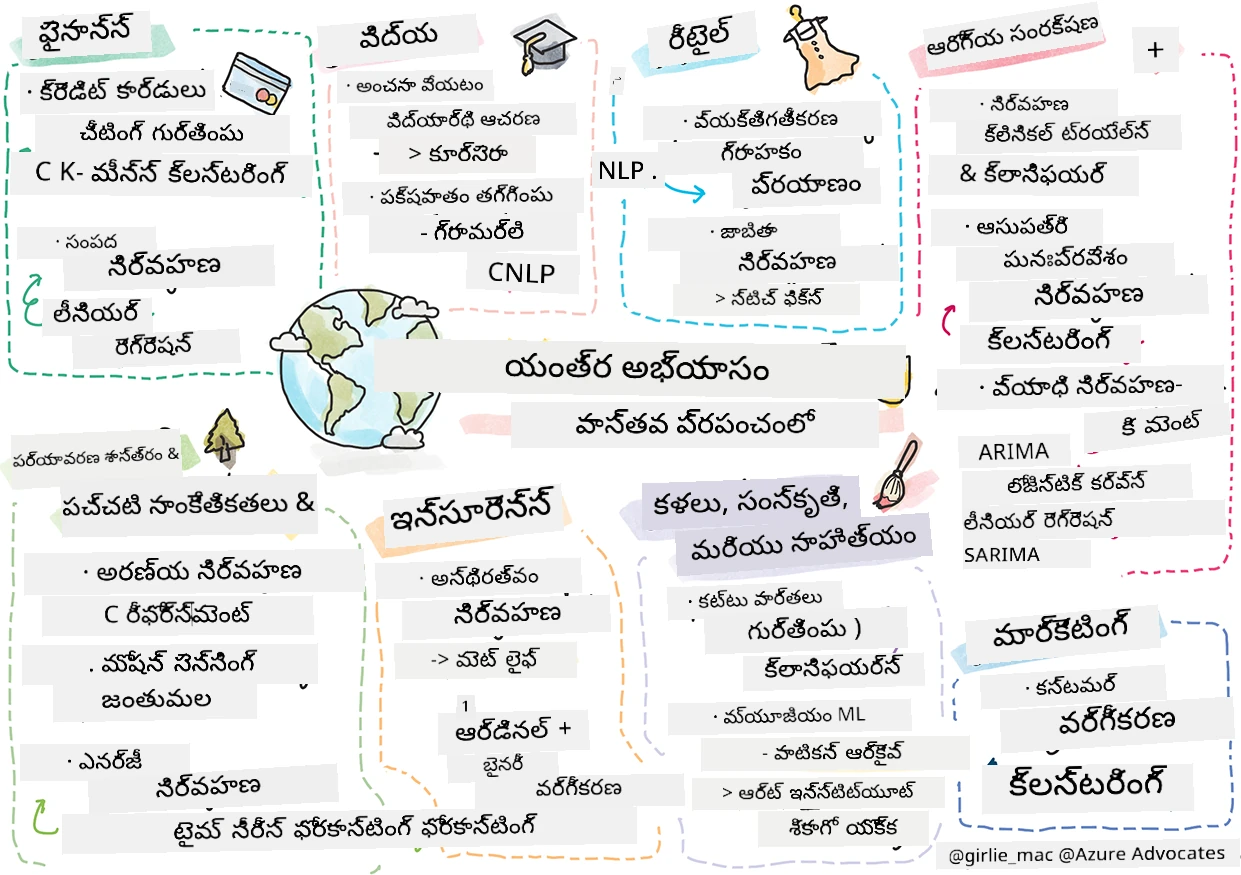 ఫైనాన్స్
· క్రెడిట్ కార్డులు
చీటింగ్ గుర్తింపు
C K- మీన్స్ క్లస్టరింగ్
· సంపద
నిర్వహణ
లీనియర్
రెగ్రెషన్
విద్య
· అంచనా వేయటం
విద్యార్థి ఆచరణ
> కూర్సెరా
· పక్షపాతం తగ్గింపు
- గ్రామర్లీ
CNLP
రీటైల్
· వ్యక్తిగతీకరణ
గ్రాహకం
NLP .
ప్రయాణం
· జాబితా
నిర్వహణ
> స్టిచ్ ఫిక్స్
ఆరోగ్య సంరక్షణ
+
· నిర్వహణ
క్లినికల్ ట్రయేల్స్
& క్లాసిఫయర్
· ఆసుపత్రి
పునఃప్రవేశం
నిర్వహణ
క్లస్టరింగ్
· వ్యాధి నిర్వహణ-
కి మెంట్
ARIMA
లోజిస్టిక్ కర్వ్స్
లీనియర్ రెగ్రెషన్
SARIMA
యంత్ర అభ్యాసం
వాస్తవ ప్రపంచంలో
పర్యావరణ శాస్త్రం &
పచ్చటి సాంకేతికతలు &
· అరణ్య నిర్వహణ
C రీఫోర్స్‌మెంట్
. మోషన్ సెన్సింగ్
జంతుమల
· ఎనర్జీ
నిర్వహణ
టైమ్ సీరీస్ ఫోర్కాస్టింగ్ ఫోర్కాస్టింగ్
ఇన్సూరెన్స్
· అస్థిరత్వం
నిర్వహణ
-> మెట్ లైఫ్
1
ఆర్డినల్ +
బైనరీ
వర్గీకరణ
కళలు, సంస్కృతి,
మరియు సాహిత్యం
· కట్టు వార్తలు
గుర్తింపు )
క్లాసిఫయర్స్
· మ్యూజియం ML
- వాటికన్ ఆర్కైవ్
> ఆర్ట్ ఇన్స్టిట్యూట్
శికాగో యొక్క
మార్కెటింగ్
· కస్టమర్
వర్గీకరణ
క్లస్టరింగ్
@girlie_mac @Azure Advocates